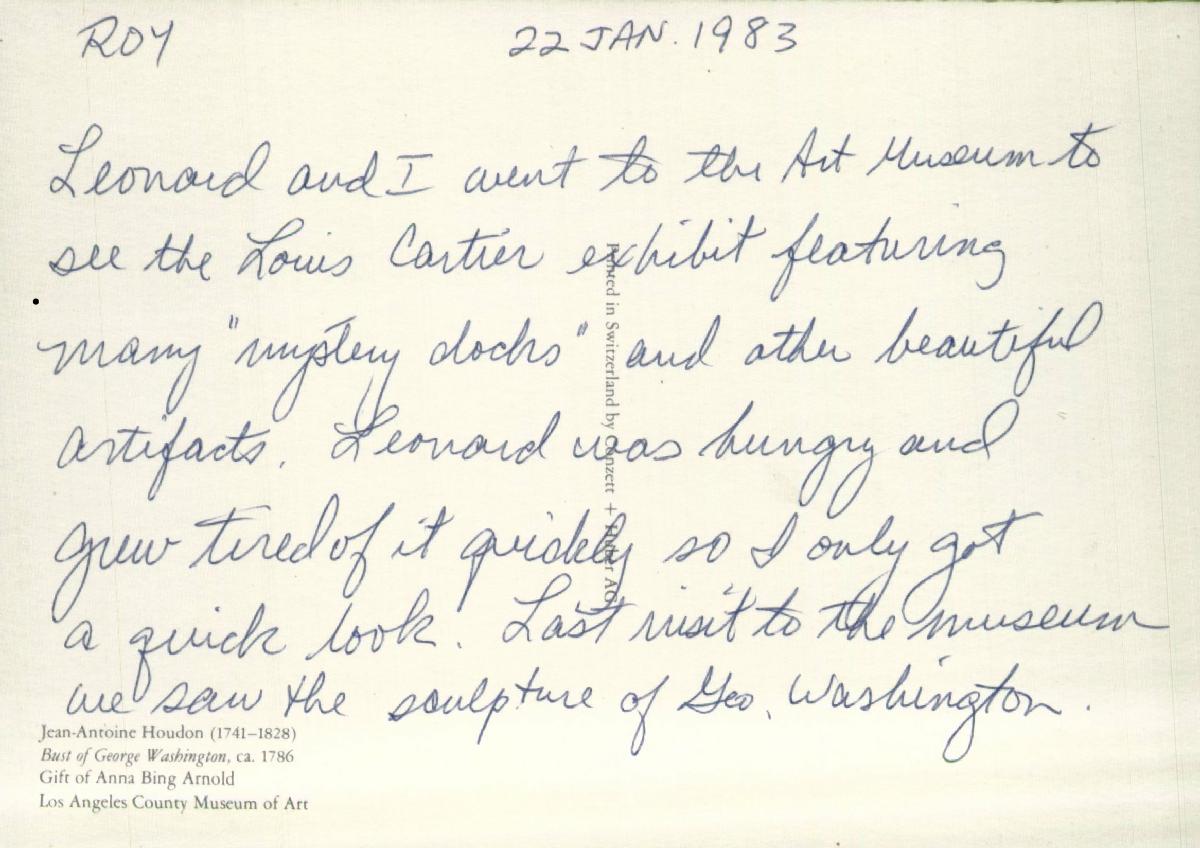 ROY 22 JAN. 1983
Leonard and I went to the Art Museum to
see the Louis Cartier exhibit featuring
many "mystery clocks" and other beautiful
artifacts. Leonard was hungry and
grew tired of it quickly so I only got
a quick look. Last visit to the museum
we saw the sculpture of Geo. Washington.
Jean-Antoine Houdon (1741–1828)
Bust of George Washington, ca. 1786
Gift of Anna Bing Arnold
Los Angeles County Museum of Art
Printed in Switzerland by Conzett + Huber AG